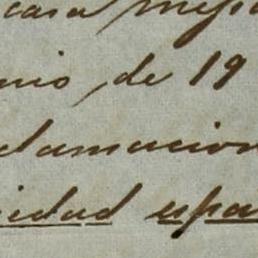 casa
nio de 19
clamacion
iedad espa